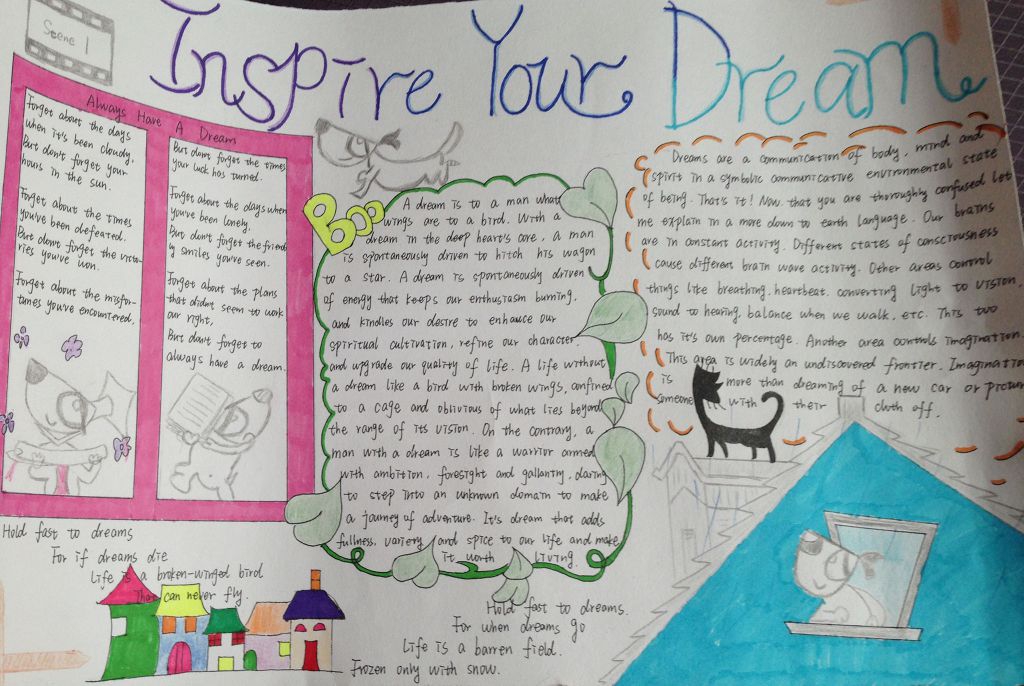 Scene 1
Inspire Your Dream
Always Have A Dream
Forget about the days
when it's been cloudy.
But don't forget your
hours in the sun.
Forget about the times
you've been defeated.
But don't forget the victo-
ries you've won.
Forget about the misfor-
tunes you've encountered.
But don't forget the times
your luck has turned.
Forget about the days when
you've been lonely.
But don't forget the friend
ly smiles you've seen.
Forget about the plans
that didn't seem to work
out right,
But don't forget to
always have a dream.
Boo
A dream is to a man what
wings are to a bird. With a
dream in the deep heart's core, a man
is spontaneously driven to hitch his wagon
to a star. A dream is spontaneously driven
of energy that keeps our enthusiasm burning.
and kindles our desire to enhance our
spiritual cultivation, refine our character,
and upgrade our quality of life. A life without
a dream like a bird with broken wings, confined
to a cage and oblivious of what lies beyond
the range of its vision. On the contrary, a
man with a dream is like a warrior armed
with ambition, foresight and gallantry, daring
to step into an unknown domain to make
a journey of adventure. It's dream that adds
fullness, variety and spice to our life and make
it worth living.
Dreams are a communication of body, mind and
spirit in a symbolic communicative environmental state
of being. That's it! Now that you are thoroughly confused let
me explain in a more down to earth language. Our brains
are in constant activity. Different states of consciousness
cause different brain wave activity. Other areas control
things like breathing, heartbeat, converting light to vision,
sound to hearing, balance when we walk, etc. This two
has it's own percentage. Another area controls imagination.
This area is widely an undiscovered frontier. Imagination
is more than dreaming of a new car or pictur
someone with their cloth off.
Hold fast to dreams
For if dreams die
Life is a broken-winged bird
That can never fly.
Hold fast to dreams.
For when dreams go
Life is a barren field.
Frozen only with snow.